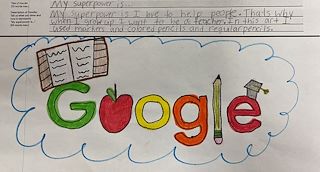 My superpower is...
My superpower is I love to help people. Thats why
when I grow up I want to be a teacher. In this art I
used markers and colored pencils and regular pencils.
Google